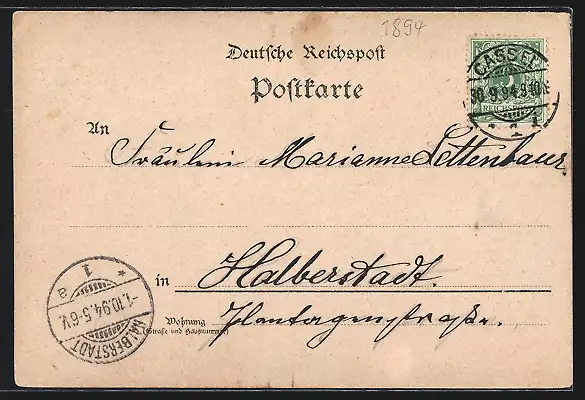 1894
Deutsche Reichspost
Postkarte
CASSEL
30.9.94.9-10N.
REICHSPOST
* 1 *
An
Fräulein Marianne Lettenbaur.
in Halberstadt.
Wohnung
(Straße und Hausnummer)
Plantagenstraße.
HALBERSTADT
-1.10.94.5-6V.
* 1 a